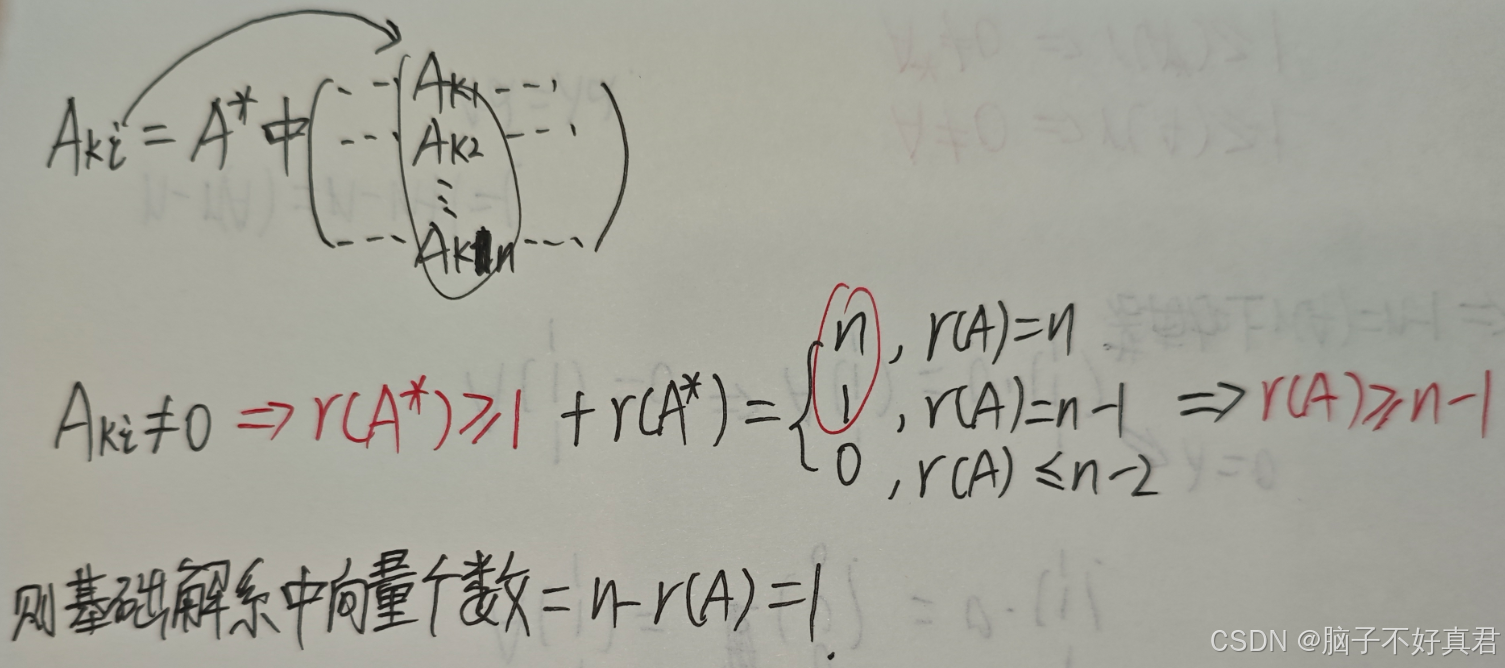 Aki = A* 中 ( ... Ak1 ... )
( ... Ak2 ... )
⋮
( ... Akn ... )
Aki≠0 ⇒ r(A*)≥1 + r(A*) = { n , r(A)=n
1 , r(A)=n-1 ⇒ r(A)≥n-1
0 , r(A)≤n-2
则基础解系中向量个数=n-r(A)=1.
CSDN @脑子不好真君